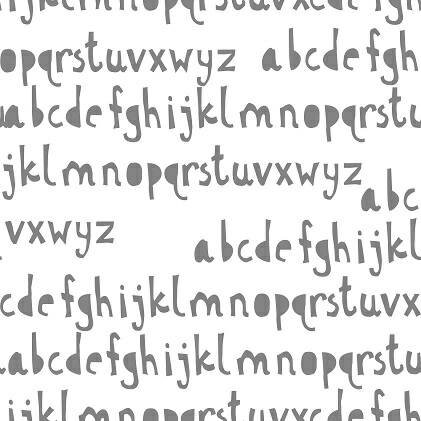 opqrstuvxwyz abcdefgh
abcdefghijklmnopqrstu
jklmnopqrstuvxwyz abc
vxwyz abcdefghijkl
cdefghijklmnopqrstuvx
abcdefghijklmnopqrstu
ijklmnopqrstuvxcdefgh